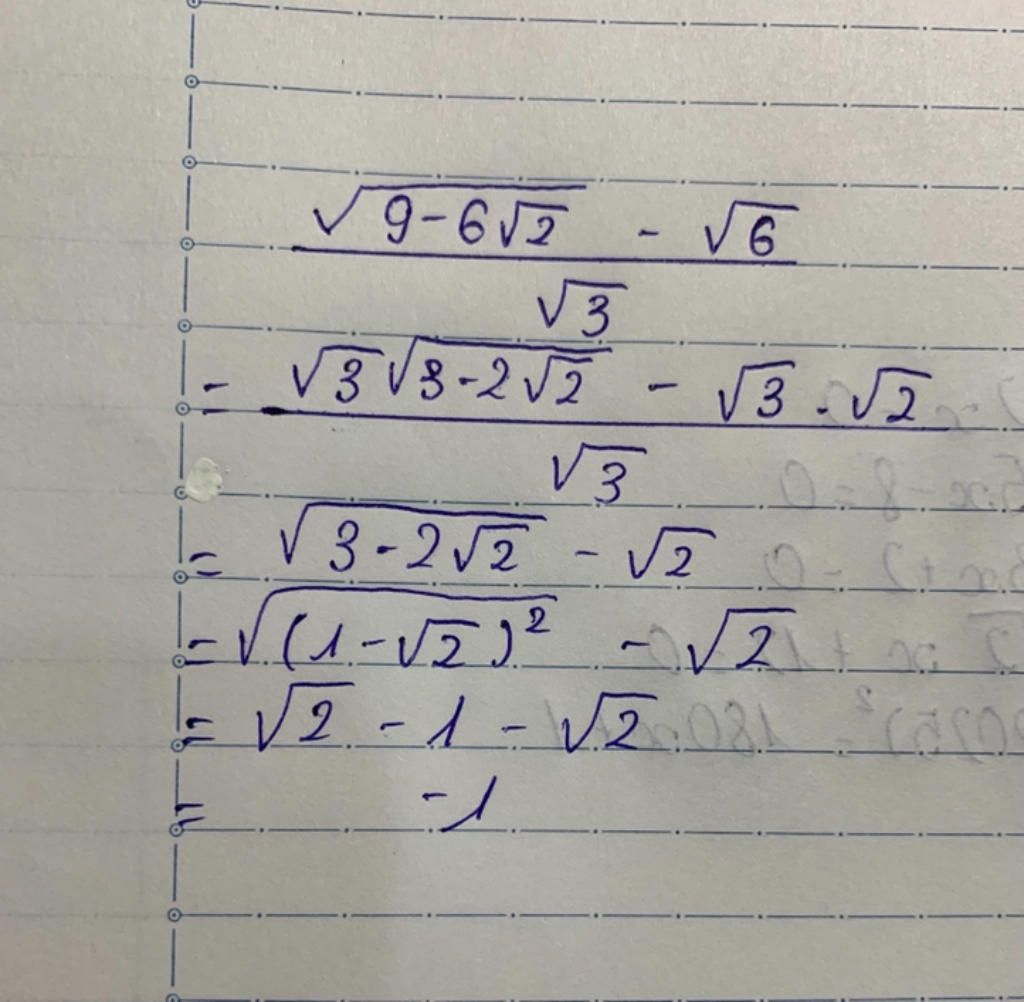 √(9-6√2) - √6
√3
= √3√(3-2√2) - √3.√2
√3
= √(3-2√2) - √2
= √((1-√2)²) - √2
= √2 - 1 - √2
= -1